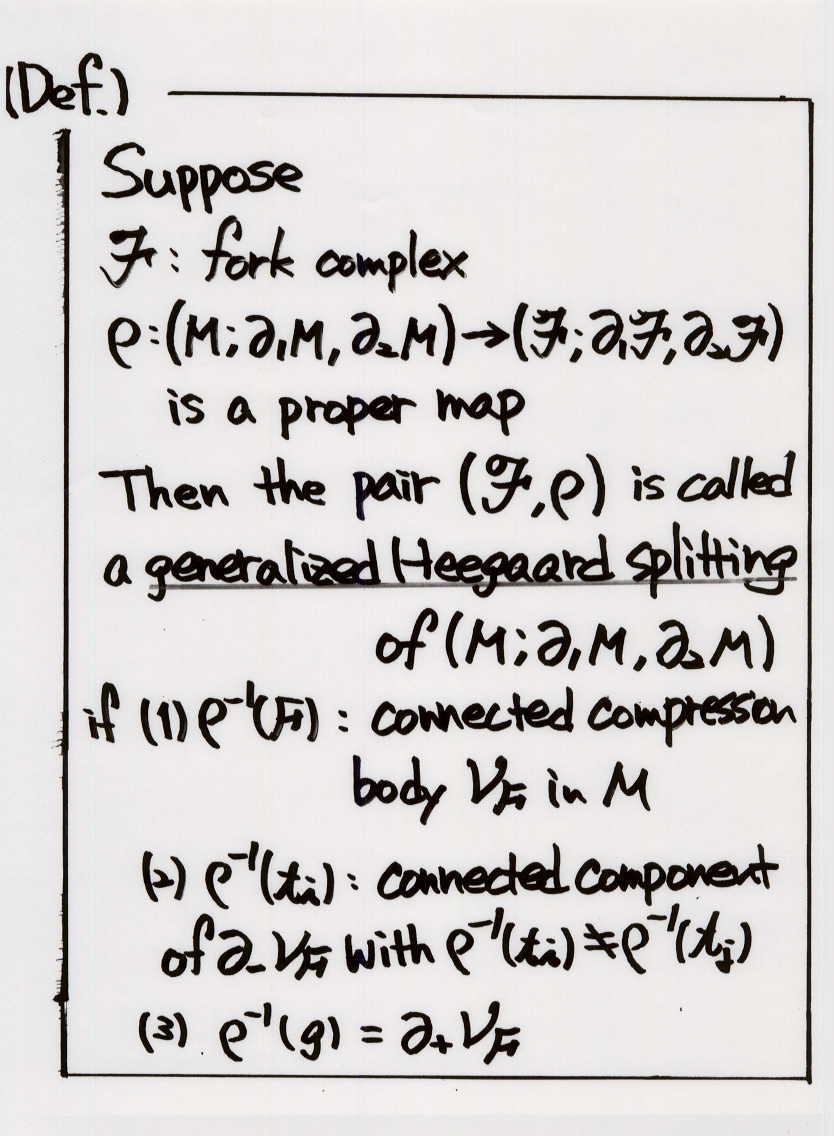 (Def.)
Suppose
ℱ: fork complex
ρ:(M;∂₁M,∂₂M)→(ℱ;∂₁ℱ,∂₂ℱ)
is a proper map
Then the pair (ℱ,ρ) is called
a generalized Heegaard splitting
of (M;∂₁M,∂₂M)
if (1) ρ⁻¹(F): connected compression
body V_F in M
(2) ρ⁻¹(tᵢ): connected component
of ∂₋V_F with ρ⁻¹(tᵢ)≠ρ⁻¹(tⱼ)
(3) ρ⁻¹(g) = ∂₊V_F